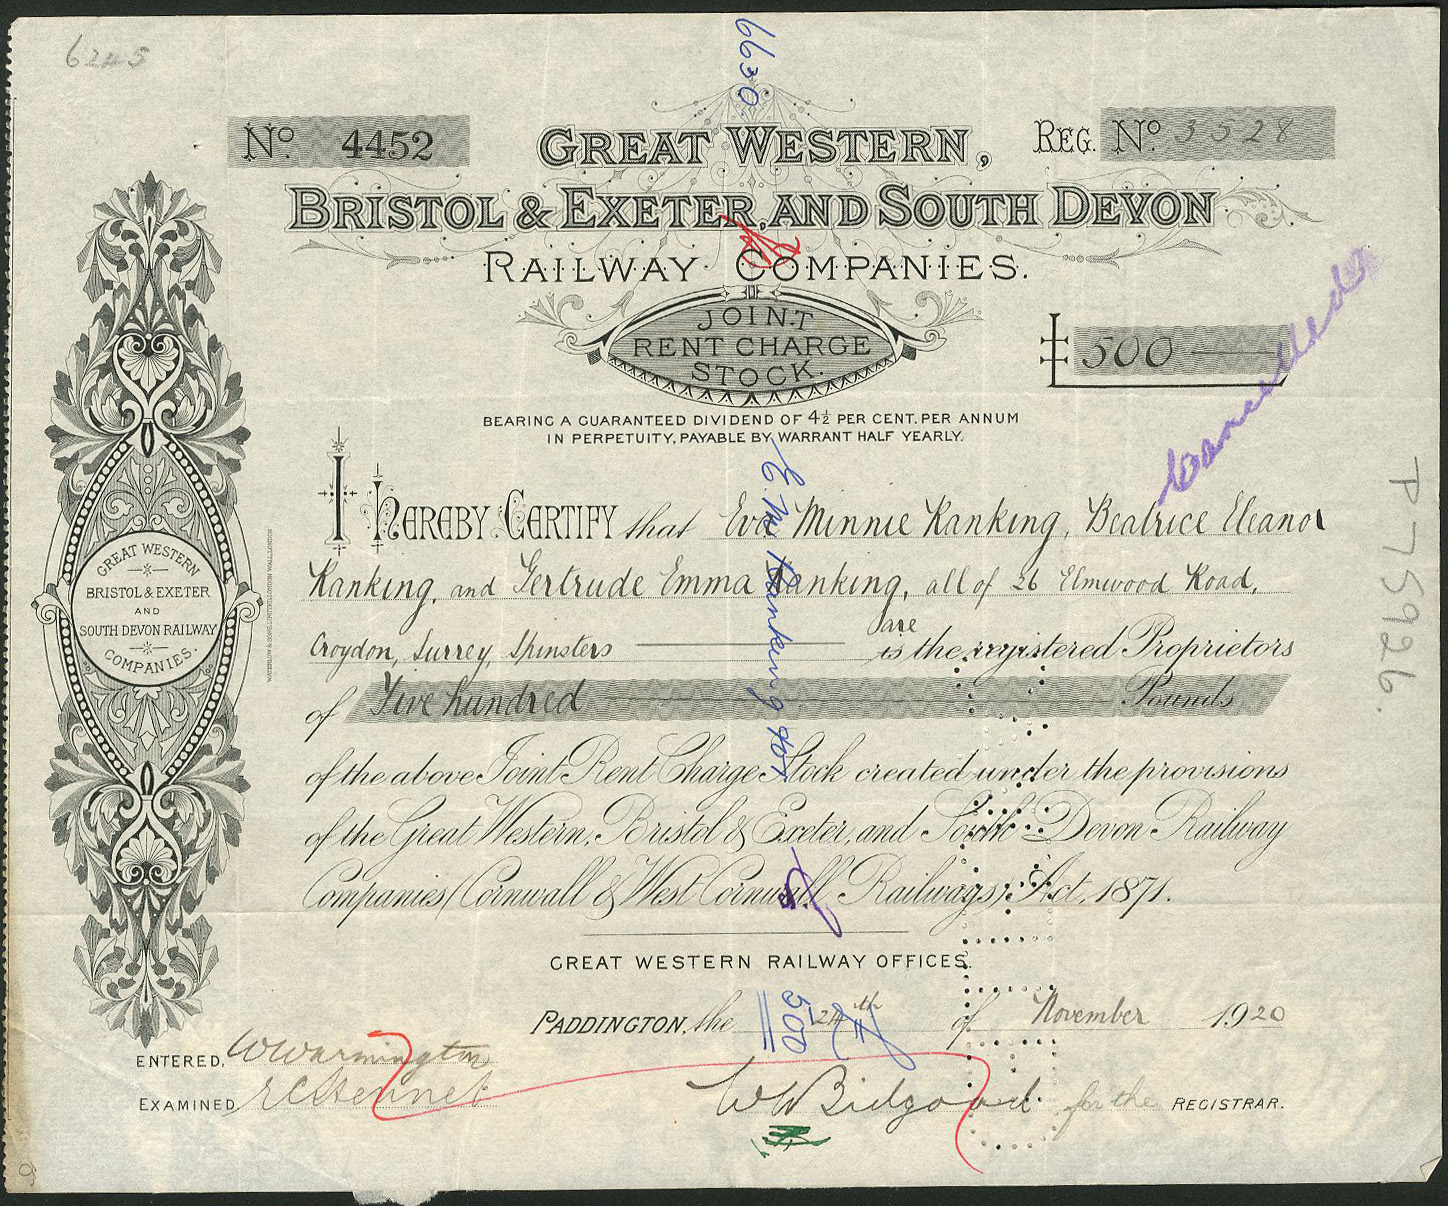 6245
6630
No. 4452
REG. No. 3528
GREAT WESTERN,
BRISTOL & EXETER, AND SOUTH DEVON
RAILWAY COMPANIES.
JOINT
RENT CHARGE
STOCK.
£500
Cancelled
BEARING A GUARANTEED DIVIDEND OF 4½ PER CENT. PER ANNUM
IN PERPETUITY, PAYABLE BY WARRANT HALF YEARLY.
I HEREBY CERTIFY that Eva Minnie Ranking, Beatrice Eleanor
Ranking, and Gertrude Emma Ranking, all of 26 Elmwood Road,
are
Croydon, Surrey, Spinsters is the registered Proprietors
of Five hundred Pounds
of the above Joint Rent Charge Stock created under the provisions
of the Great Western, Bristol & Exeter, and South Devon Railway
Companies (Cornwall & West Cornwall Railways) Act, 1871.
GREAT WESTERN RAILWAY OFFICES.
PADDINGTON, the 24th of November 1920
ENTERED, W Warmington
EXAMINED
W W Bidgood for the REGISTRAR.
E. M. Ranking
500
P75926.
GREAT WESTERN
BRISTOL & EXETER
AND
SOUTH DEVON RAILWAY
COMPANIES.
WATERLOW & SONS LIMITED, LONDON WALL, LONDON